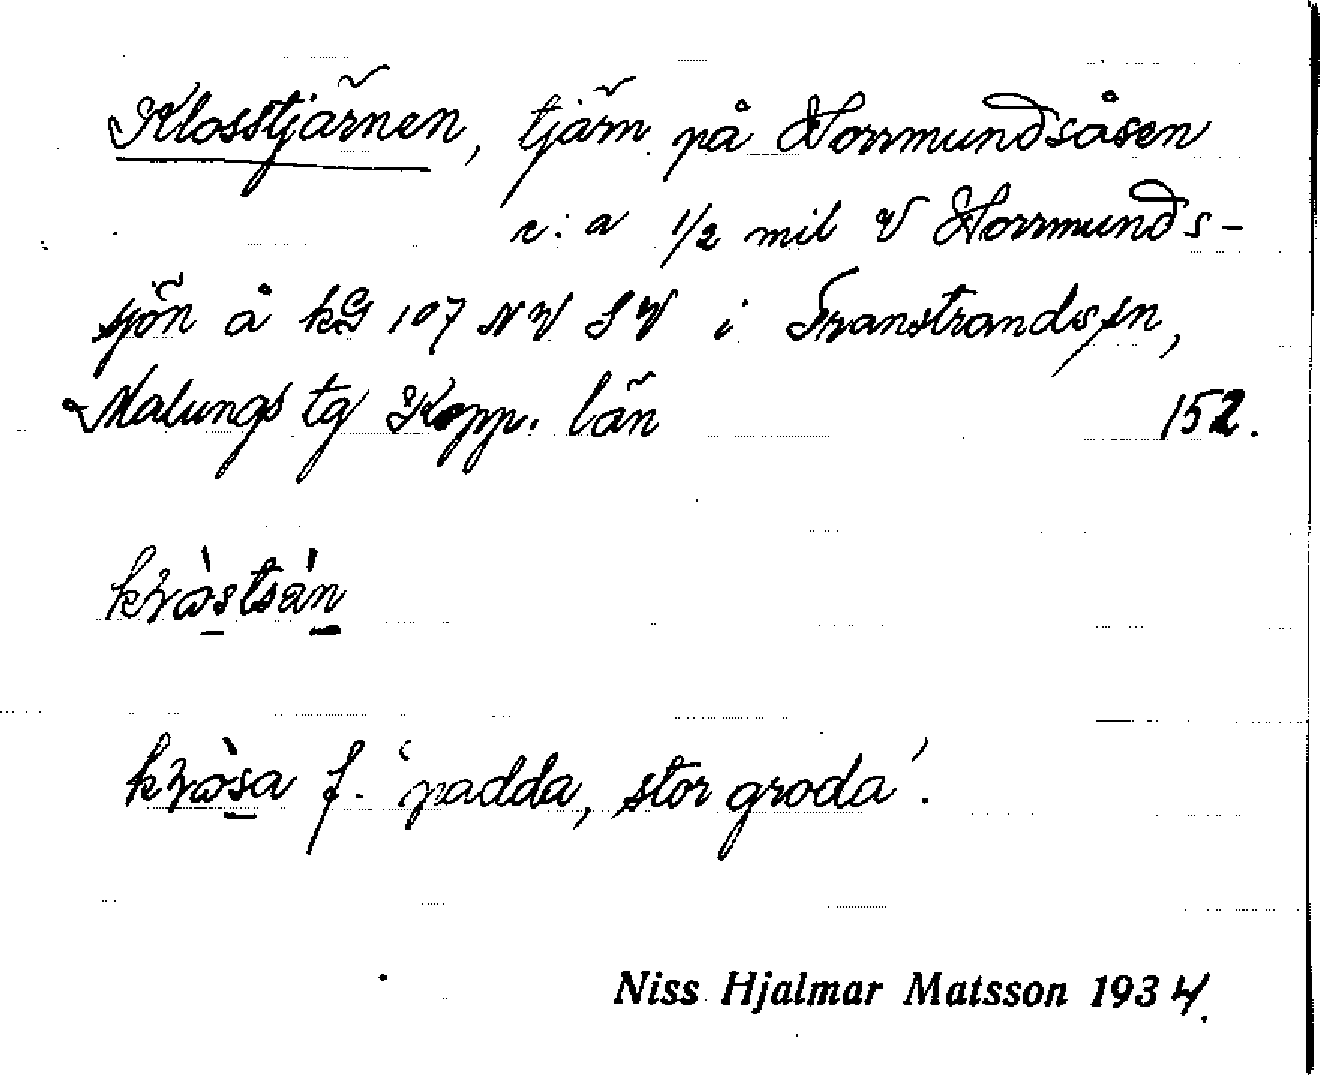 Klosstjärnen, tjärn på Horrmundsåsen
c:a 1/2 mil V Horrmunds-
sjön å kG 107 NV SV i Transtrands sn,
Malungs tg Kopp. län 152.
f. 'padda, stor groda'.
Niss Hjalmar Matsson 1934.